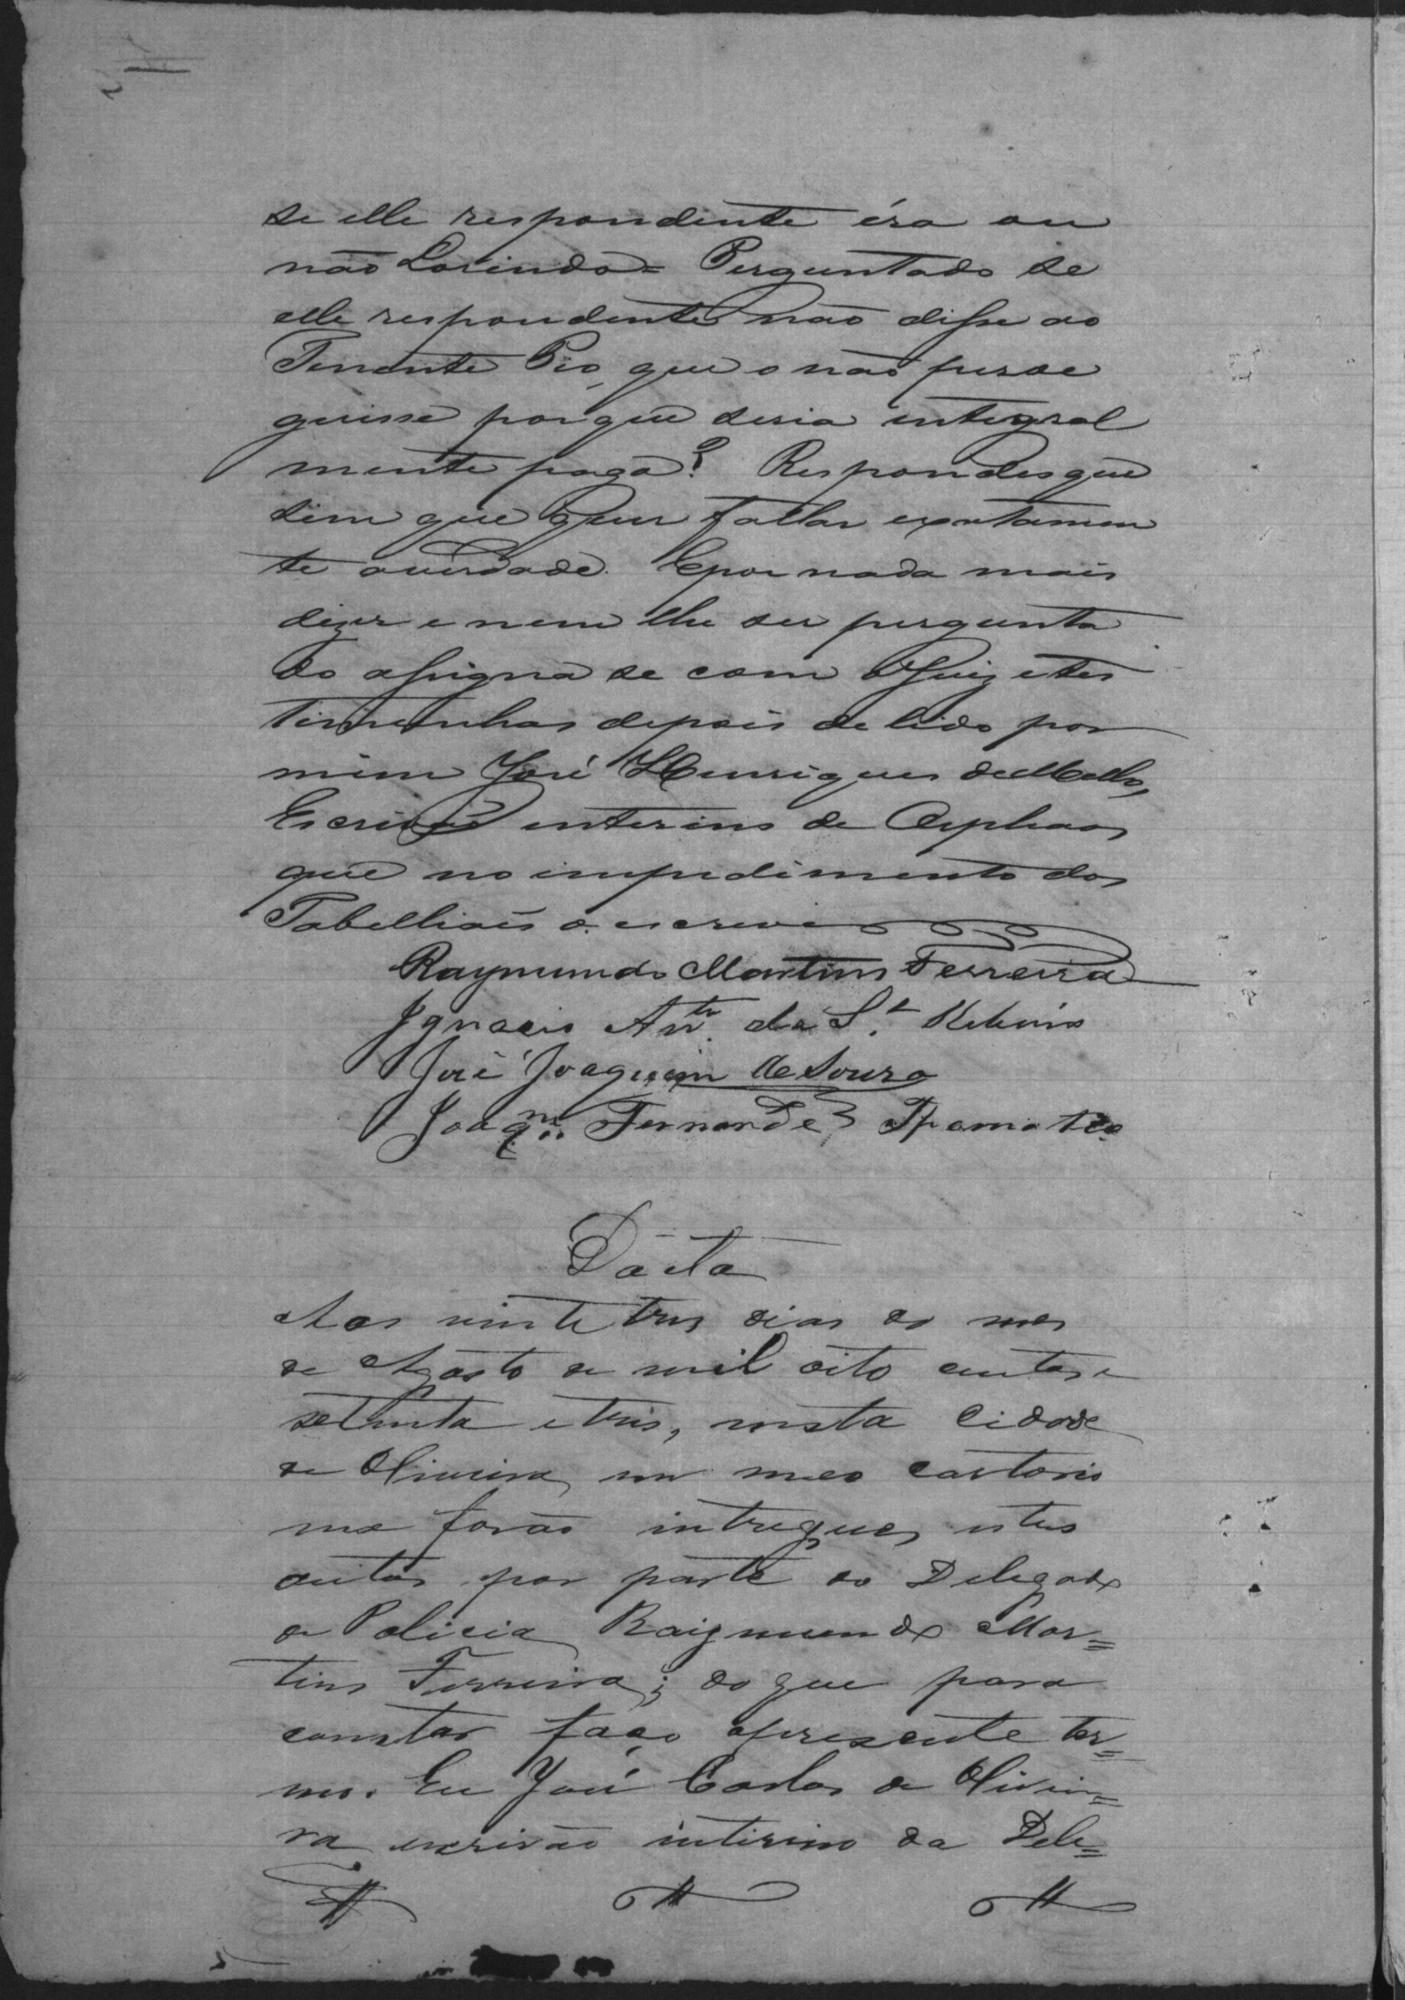 se elle respondente éra ou
não Lorindo = Perguntado se
elle respondente não disse ao
Tenente Pio, que o não perse
guisse porque seria integral
mente pago? Respondeo que
sim que quer fallar exatamen
te averdade. Epor nada mais
dizer e nem lhe ser pergunta
do assigna se com o Juiz etes
timunhas depois de lido por
mim José Henriques de Mello,
Escrivão interino de Orphaos
que no impedimento dos
Tabelliaes o escrevi
Raymundo Martins Ferreira
Ignacio Antº. da S.ª Ribeiro
José Joaquim de Souza
Joaqm. Fernandes
Dacta
Aos vinte tres dias do mes
de Agosto de mil oito centos e
setenta e tres, nesta Cidade
de Oliveira, em meo cartorio
me forão intregues estes
autos por parte do Delegado
de Policia Raigmundo Mar=
tins Ferreira; do que para
constar faço opresente ter=
mo. Eu José Carlos de Olivei=
ra escrivão interino da Dele=